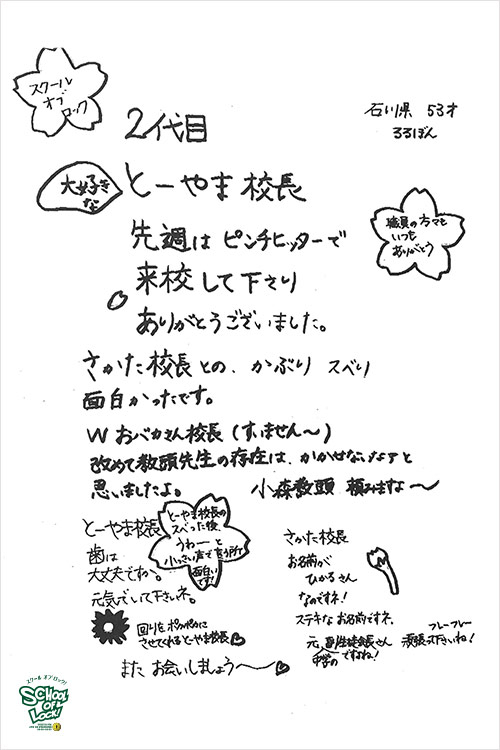 スクール
オブ
ロック
石川県 53才
るるぽん
2代目
大好きな
とーやま校長
職員の方々も
いつも
ありがとう
先週は ピンチヒッターで
来校して下さり
ありがとうございました。
さかた校長との、かぶり スベり
面白かったです。
W おバカさん校長(すいません～)
改めて教頭先生の存在は、かかせないなァと
思いましたよ。
小森教頭 頼みますな～
とーやま校長
歯は
大丈夫ですか。
元気でいて下さいネ。
とーやま校長の
スベった後
うわーーと
小っさい声で言う所が
面白いです!
さかた校長
お名前が
ひかるさん
なのですネ!
ステキなお名前ですネ。
元、中学の生徒会長さん
ですよね!
フレーフレー
頑張って下さいね!
回りをポカポカに
させてくれるとーやま校長
また お会いしましょう～
スクール オブ ロック!
SCHOOL
OF
LOCK!